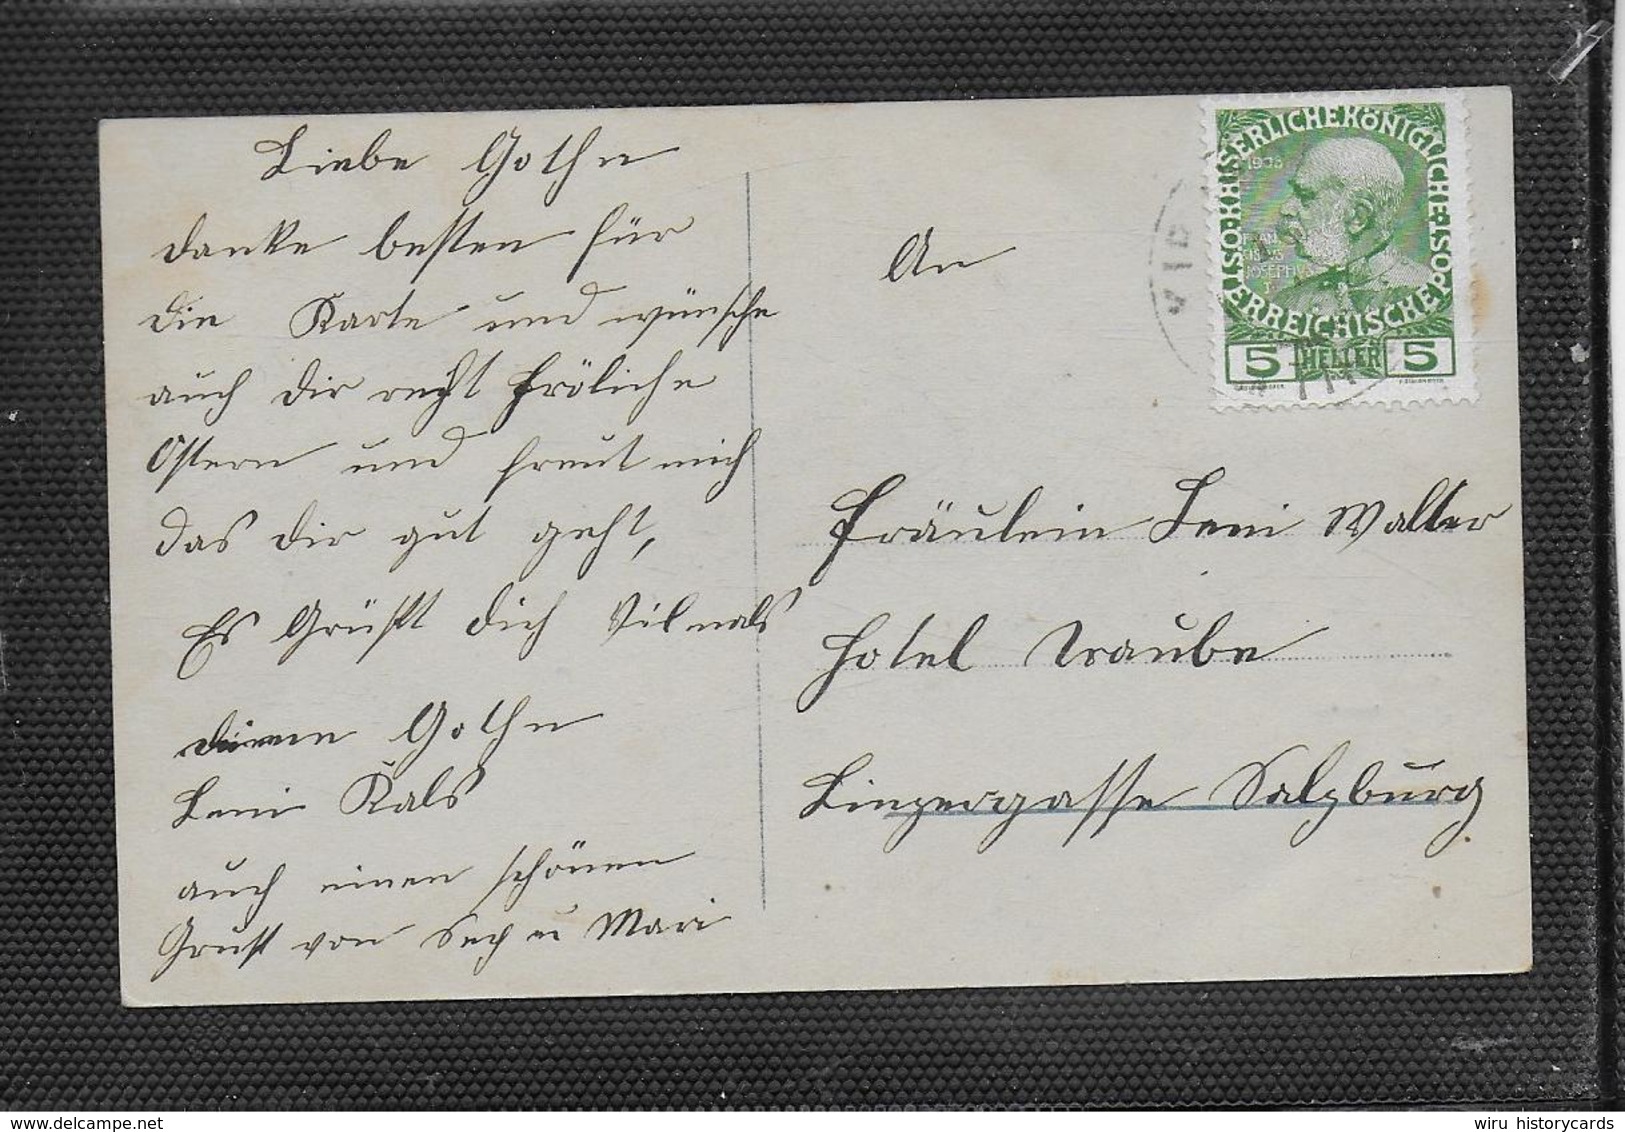 Liebe Gothe
danke besten für
die Karte und wünsche
auch dir recht fröliche
Ostern und freut mich
das dir gut geht,
Es Grüßt dich Vilmals
deine Gothe
Leni Kals
auch einen schönen
Gruß von u Mari
An
Fräulein Leni Walter
Hotel Traube
Linzergasse Salzburg.
KAISERLICHE KÖNIGLICHE ÖSTERREICHISCHE POST
1908
5 HELLER 5
wiru historycards